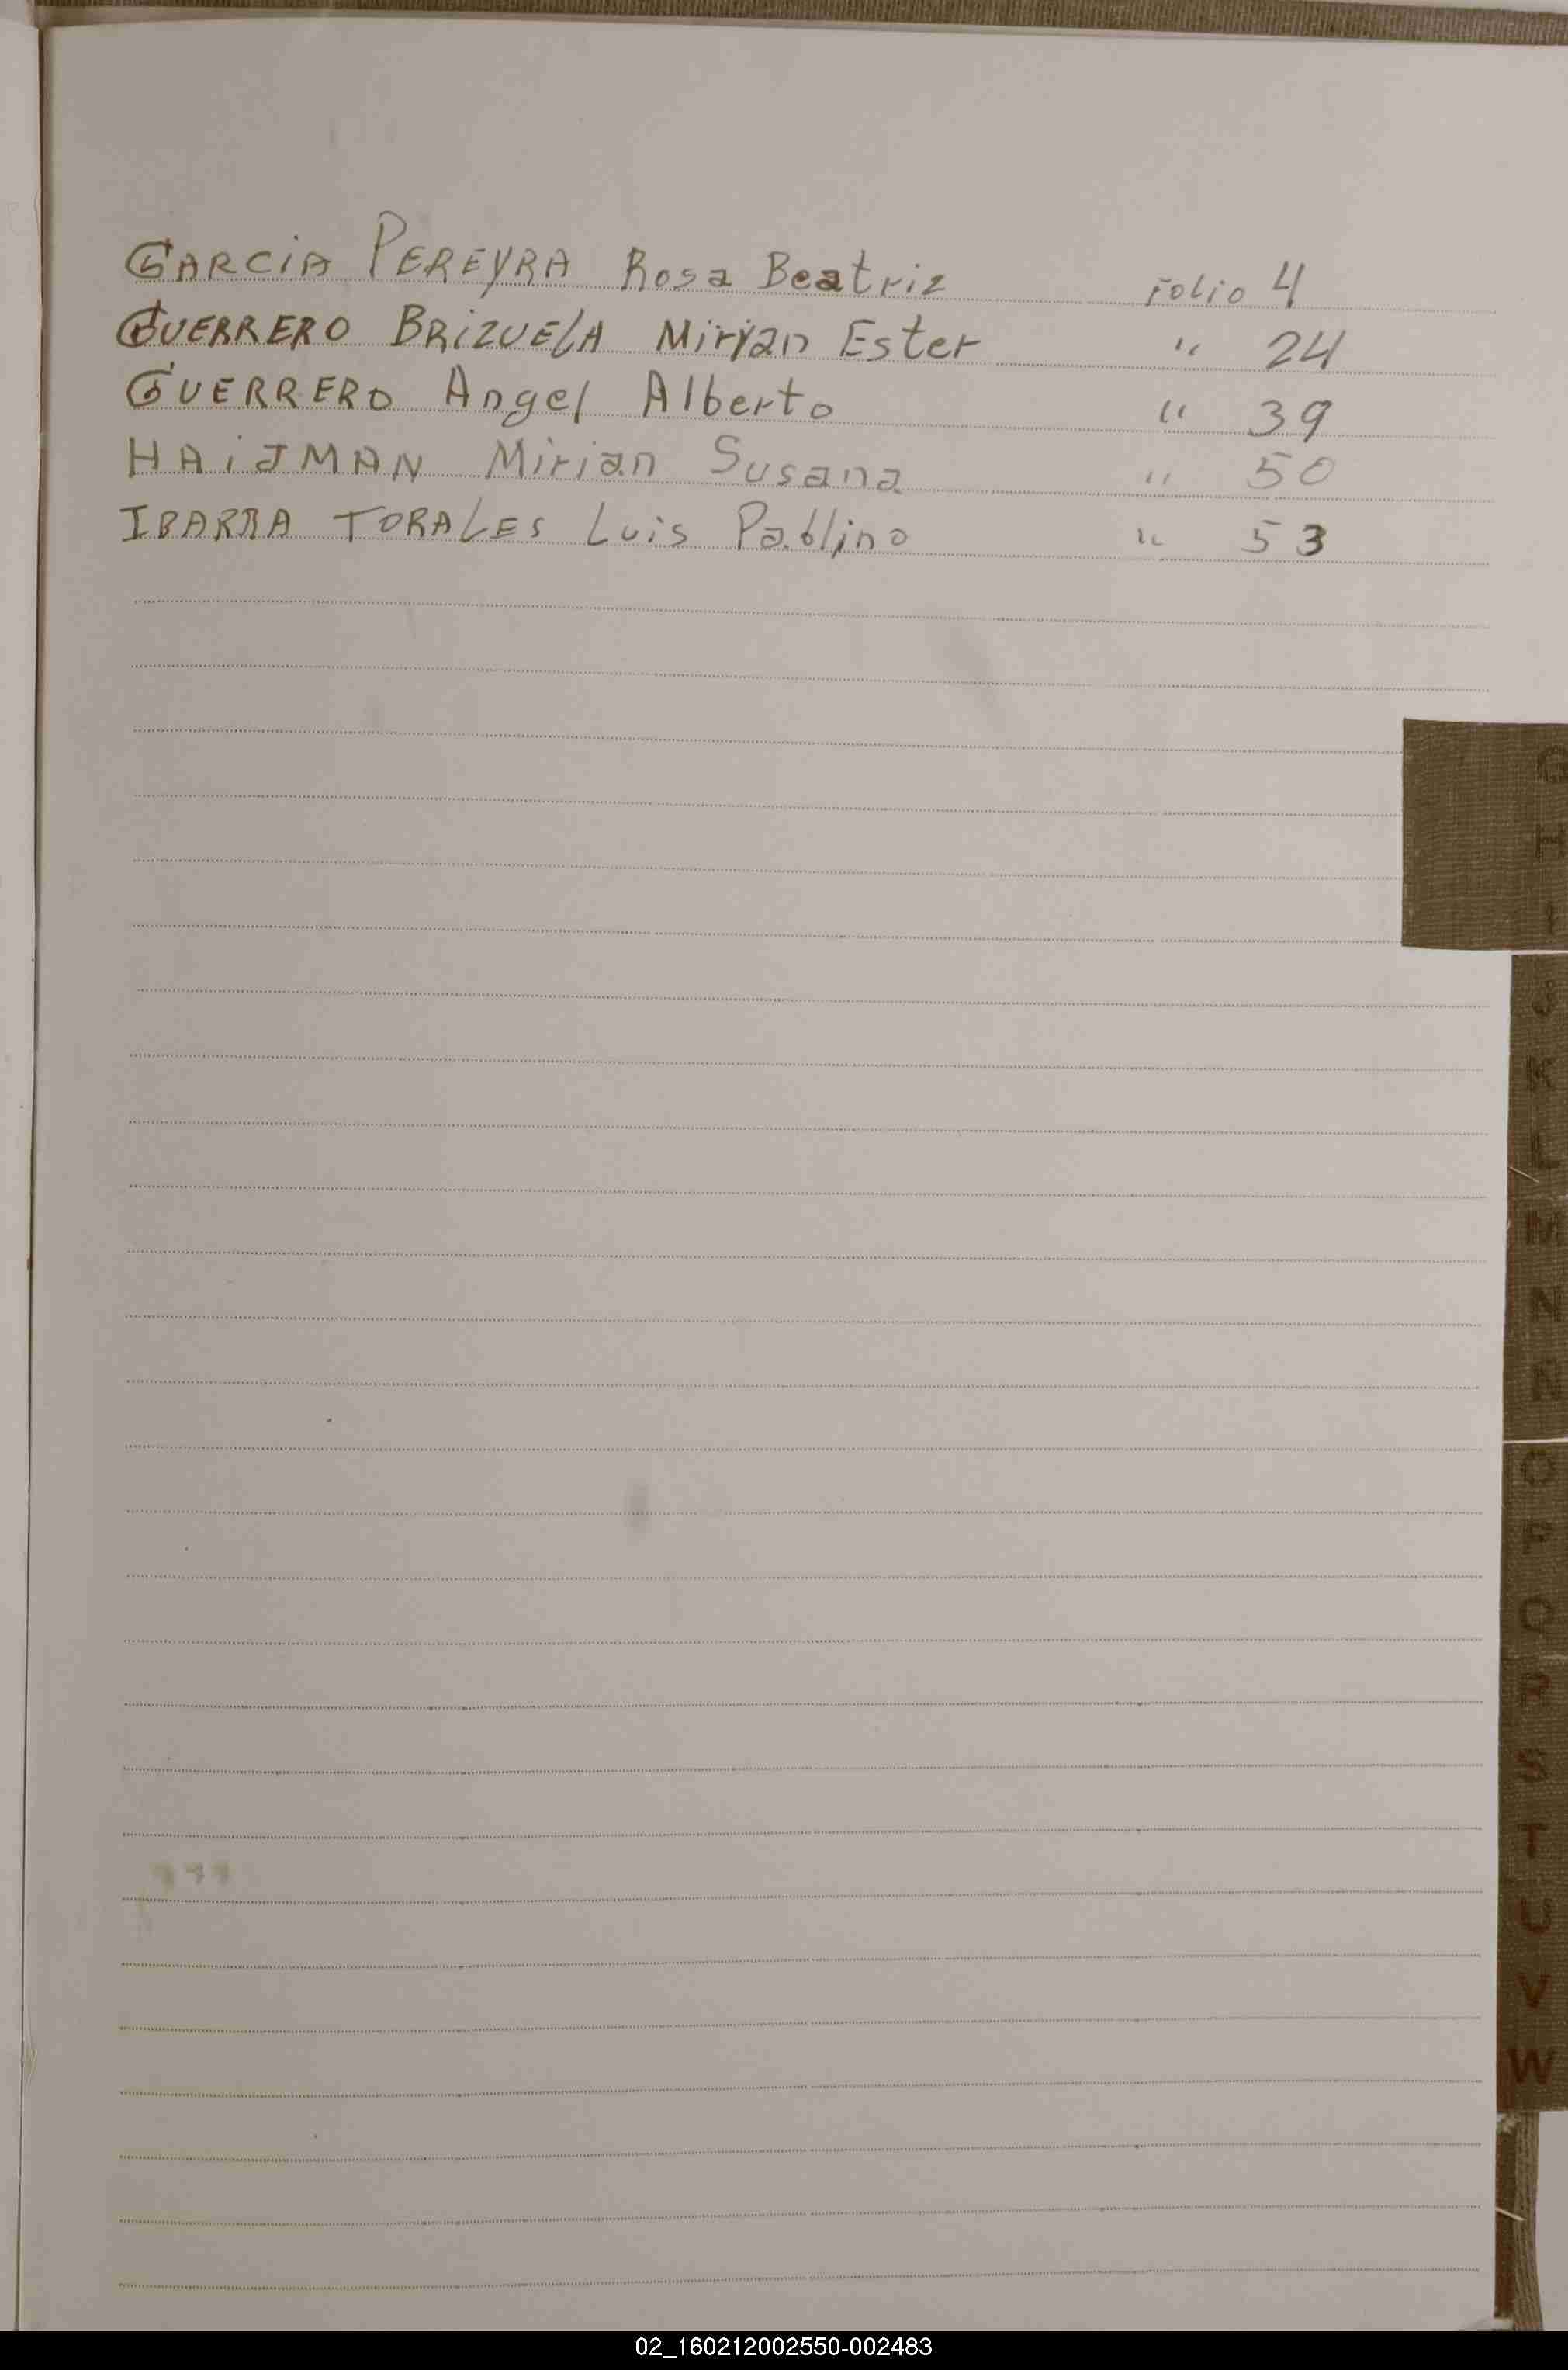 GARCiA PEREYRA Rosa Beatriz Folio 4
GUERRERO BRIZUELA Miryan Ester " 24
GUERRERO Angel Alberto " 39
HAiJMAN Mirian Susana " 50
IBARRA TORALES Luis Pablino " 53
G
H
I
J
K
L
M
N
Ñ
O
P
Q
R
S
T
U
V
W
02_160212002550-002483